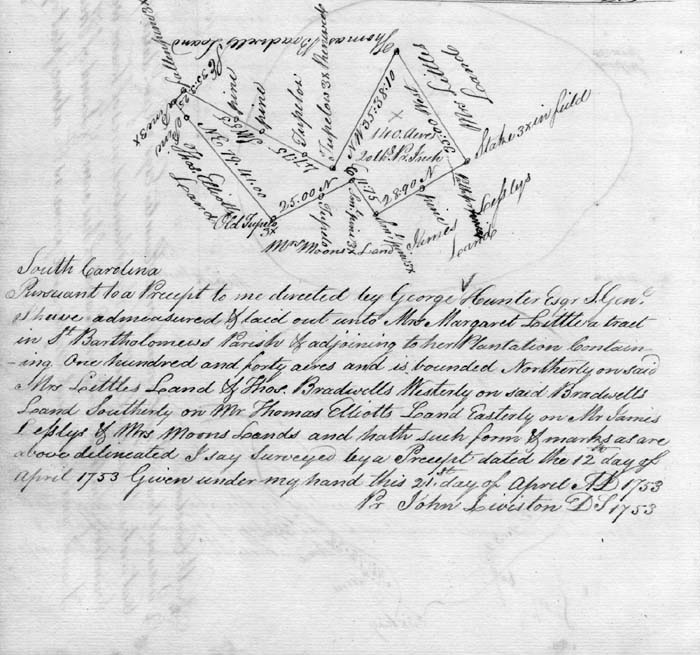 Thomas Bradwells Land
Pine
Pine
Tupelo
Tupelo 3x
N W 35:38:10
140 Acres
20 Ch. Pr Inch
Mrs Littles
Land
Stake 3x in field
28.90 N
11.75
1.75
Pine
James Lesslys
Land
25.00 N
Tupelo
Thos Elliotts
Land
Old Tupelo
3x
Mrs Moons Land
South Carolina
Pursuant to a Precept to me directed by George Hunter Esqr S. Genl
I have admeasured & laid out unto Mrs Margaret Little a tract
in St Bartholomews Parish & adjoining to her Plantation Contain-
-ing One hundred and forty acres and is bounded Northerly on said
Mrs Littles Land & Thos. Bradwells Westerly on said Bradwells
Land Southerly on Mr Thomas Elliotts Land Easterly on Mr James
Lesslys & Mrs Moons Lands and hath such form & marks as are
above delineated I say Surveyed by a Precept dated the 12th day of
April 1753 Given under my hand this 21st day of April AD 1753
Pr John Liviston DS 1753